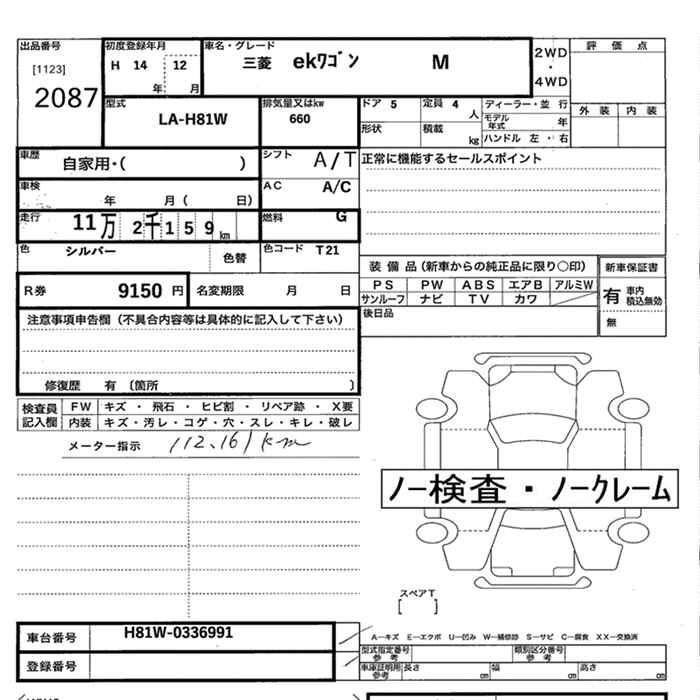 出品番号
[1123]
2087
初度登録年月
H 14 12
年 月
車名・グレード
三菱 ekワゴン M
2WD
・
4WD
評価点
外装 内装
型式
LA-H81W
排気量又はkw
660
ドア 5
定員 4 人
形状
積載 kg
ディーラー・並行
モデル年式 年
ハンドル 左・右
車歴
自家用・( )
シフト A/T
車検
年 月( 日)
AC A/C
走行
11万 2千159km
燃料 G
色
シルバー
色替
色コード T21
R券 9150 円
名変期限 月 日
正常に機能するセールスポイント
装備品(新車からの純正品に限り〇印)
PS PW ABS エアB アルミW
サンルーフ ナビ TV カワ
後日品
新車保証書
有 車内積込無効
無
注意事項申告欄(不具合内容等は具体的に記入して下さい)
修復歴 有 〔箇所 〕
検査員記入欄
FW キズ・飛石・ヒビ割・リペア跡・X要
内装 キズ・汚レ・コゲ・穴・スレ・キレ・破レ
メーター指示 112,161km
ノー検査・ノークレーム
スペアT
[ ]
車台番号 H81W-0336991
登録番号
A―キズ E―エクボ U―凹み W―補修跡 S―サビ C―腐食 XX―交換済
型式指定番号
参考
類別区分番号
参考
車庫証明用
参考
長さ cm 幅 cm 高さ cm